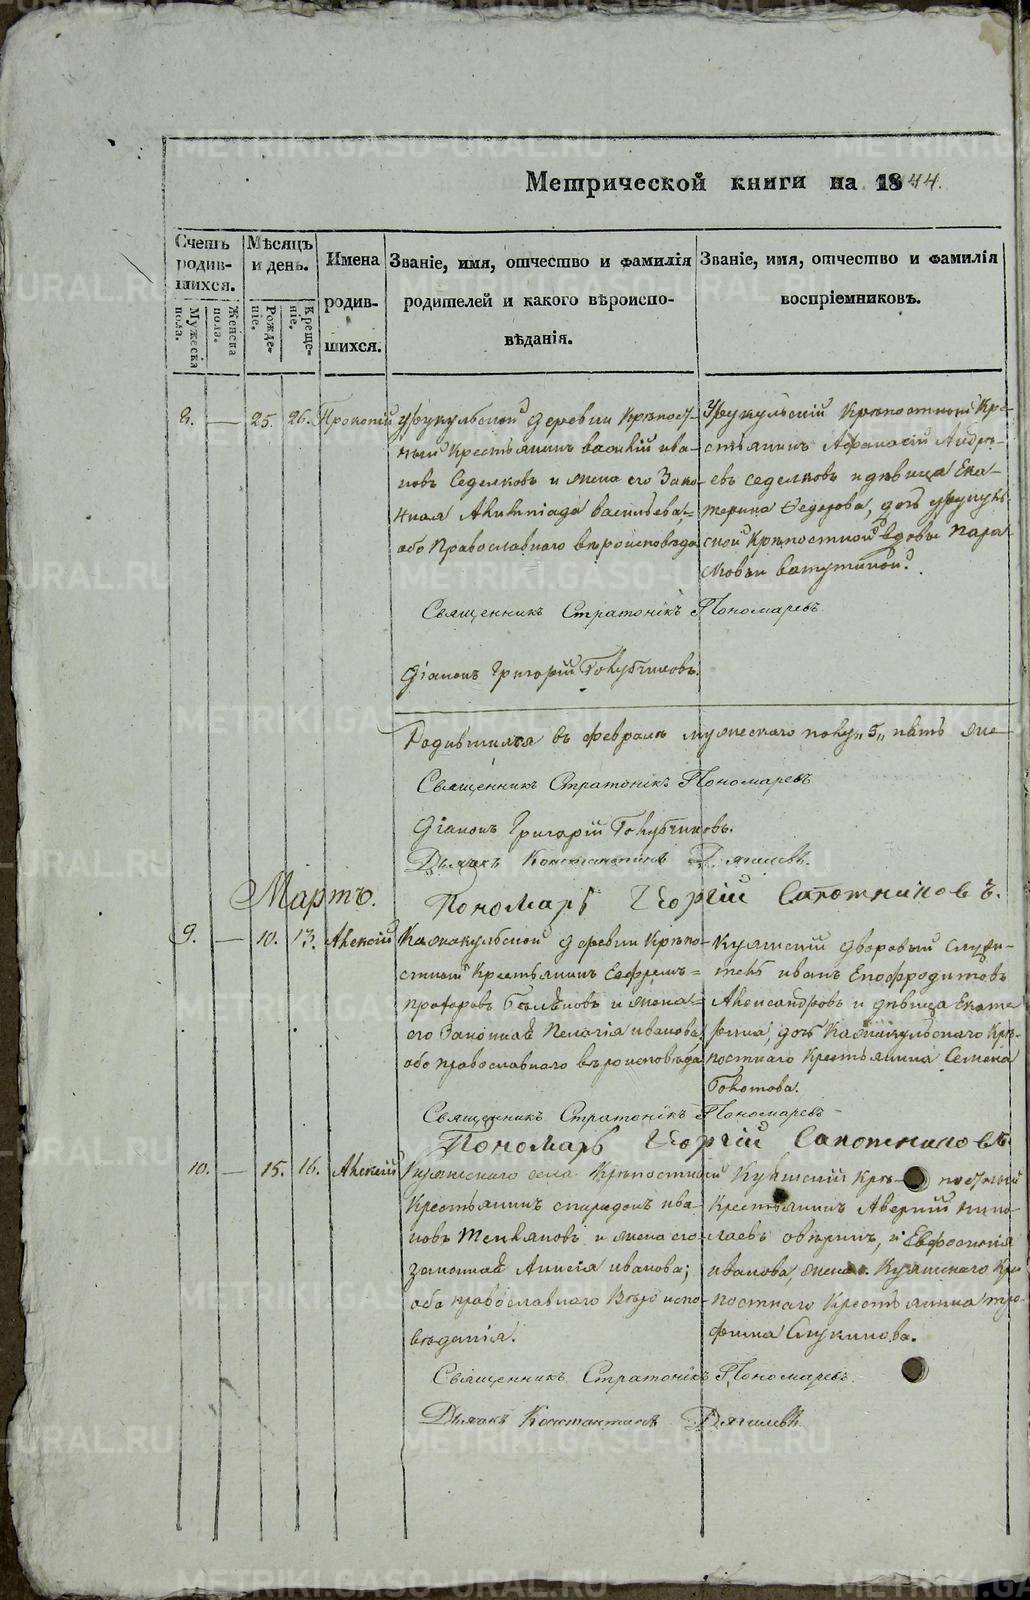 Метрической книги на 1844.
Счетъ родив-шихся.
Мужеска пола.
Женска пола.
Мѣсяцъ и день.
Рожде-ніе.
Креще-ніе.
Имена родив-шихся.
Званіе, имя, отчество и фамилія
родителей и какого вѣроиспо-
вѣданія.
Званіе, имя, отчество и фамилія
воспріемниковъ.
8. — 25. 26. Прокопій
деревни Крѣпост-
ный Крестьянинъ Василій Ива-
новъ Седелковъ и жена его Зако-
нная Васильева,
обо Православнаго вѣроисповѣда
Крѣпостный Кре-
стьянинъ Афанасій Андрѣ-
евъ Седелковъ и дѣвица Ека-
терина Ѳедорова, дочь
ской Крѣпостной вдовы Пара-
сковьи Ватутиной.
Священникъ Стратоникъ Пономаревъ
Діаконъ Григорій Голубчиковъ.
Родившихся въ Февралѣ мужескаго полу „5„ пять же-
Священникъ Стратоникъ Пономаревъ
Діаконъ Григорій Голубчиковъ.
Дьячокъ Константинъ Дягилевъ.
Пономарь Георгій Сапожниковъ.
Мартъ.
9. — 10. 13. Алексій
деревни Крѣпо-
стный Крестьянинъ Евфремъ
и жена
его Законная Пелагія Иванова
обо православнаго вѣроисповѣда
Куяшскій дворовый служи-
тель Иванъ Епафродитовъ
Александровъ и дѣвица Екате
рина, дочь Крѣ-
постнаго Крестьянина Семена
Болотова.
Священникъ Стратоникъ Пономаревъ
Пономарь Георгій Сапожниковъ
10. — 15. 16. Алексій
Куяшскаго села Крѣпостной
Крестьянинъ Спиридонъ Ива-
новъ и жена его
законная Анисія Иванова;
оба православнаго Вѣроиспо-
вѣданія.
Куяшскій Крѣ-постный
Крестьянинъ Аверкій Нико-
лаевъ и Евфросинія
Иванова, жена Куяшскаго Крѣ
постнаго Крестьянина Тро-
фима
Священникъ Стратоникъ Пономаревъ.
Дьячокъ Константинъ Дягилевъ
METRIKI.GASO-URAL.RU